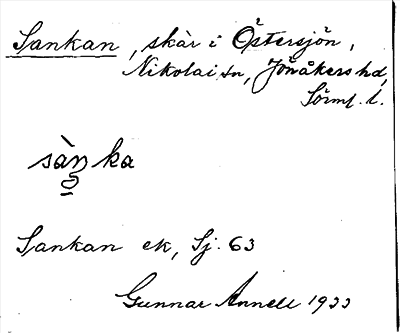 Sankan, skär i Östersjön,
Nikolai sn, Jönåkers hd,
Sörml. l.
sàŋka
Sankan ek, Sj. 63
Gunnar Annell 1933